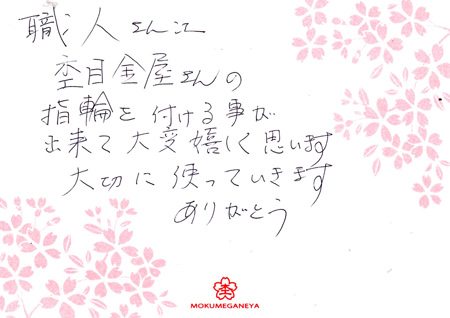 職人さん江
杢目金屋さんの
指輪を付ける事が
出来て大変嬉しく思います
大切に使っていきます
ありがとう
杢
MOKUMEGANEYA